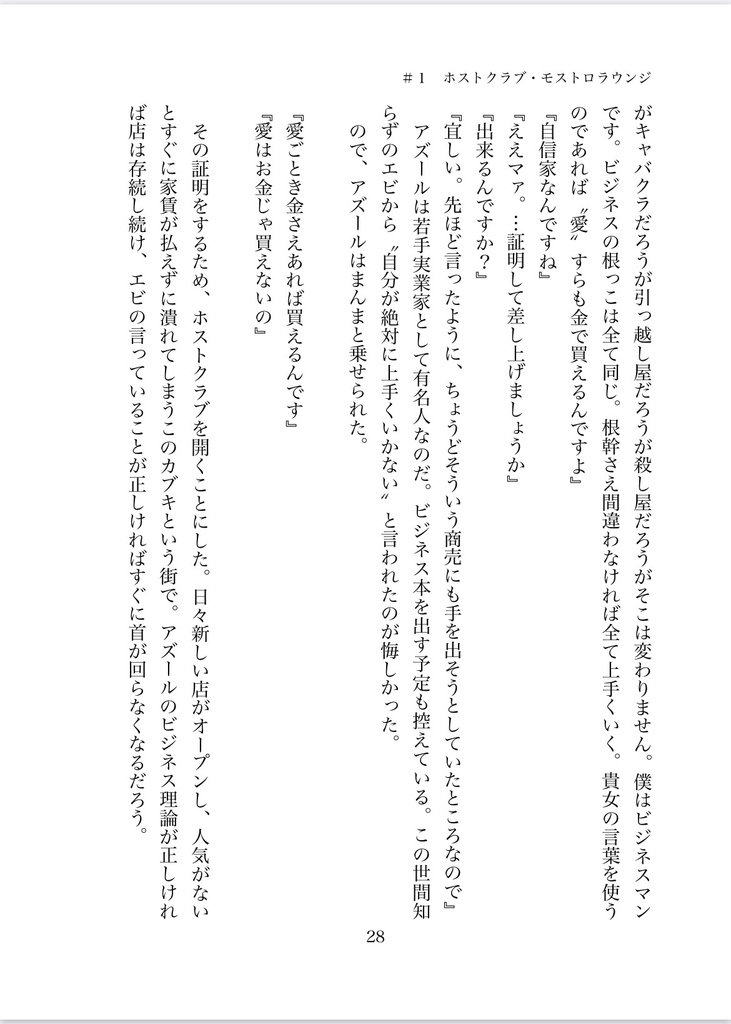 #1　ホストクラブ・モストロラウンジ
がキャバクラだろうが引っ越し屋だろうが殺し屋だろうがそこは変わりません。僕はビジネスマン
です。ビジネスの根っこは全て同じ。根幹さえ間違わなければ全て上手くいく。貴女の言葉を使う
のであれば〝愛〟すらも金で買えるんですよ』
『自信家なんですね』
『ええマァ。…証明して差し上げましょうか』
『出来るんですか？』
『宜しい。先ほど言ったように、ちょうどそういう商売にも手を出そうとしていたところなので』
　アズールは若手実業家として有名人なのだ。ビジネス本を出す予定も控えている。この世間知
らずのエビから〝自分が絶対に上手くいかない〟と言われたのが悔しかった。
　ので、アズールはまんまと乗せられた。
『愛ごとき金さえあれば買えるんです』
『愛はお金じゃ買えないの』
　その証明をするため、ホストクラブを開くことにした。日々新しい店がオープンし、人気がない
とすぐに家賃が払えずに潰れてしまうこのカブキという街で。アズールのビジネス理論が正しけれ
ば店は存続し続け、エビの言っていることが正しければすぐに首が回らなくなるだろう。
28